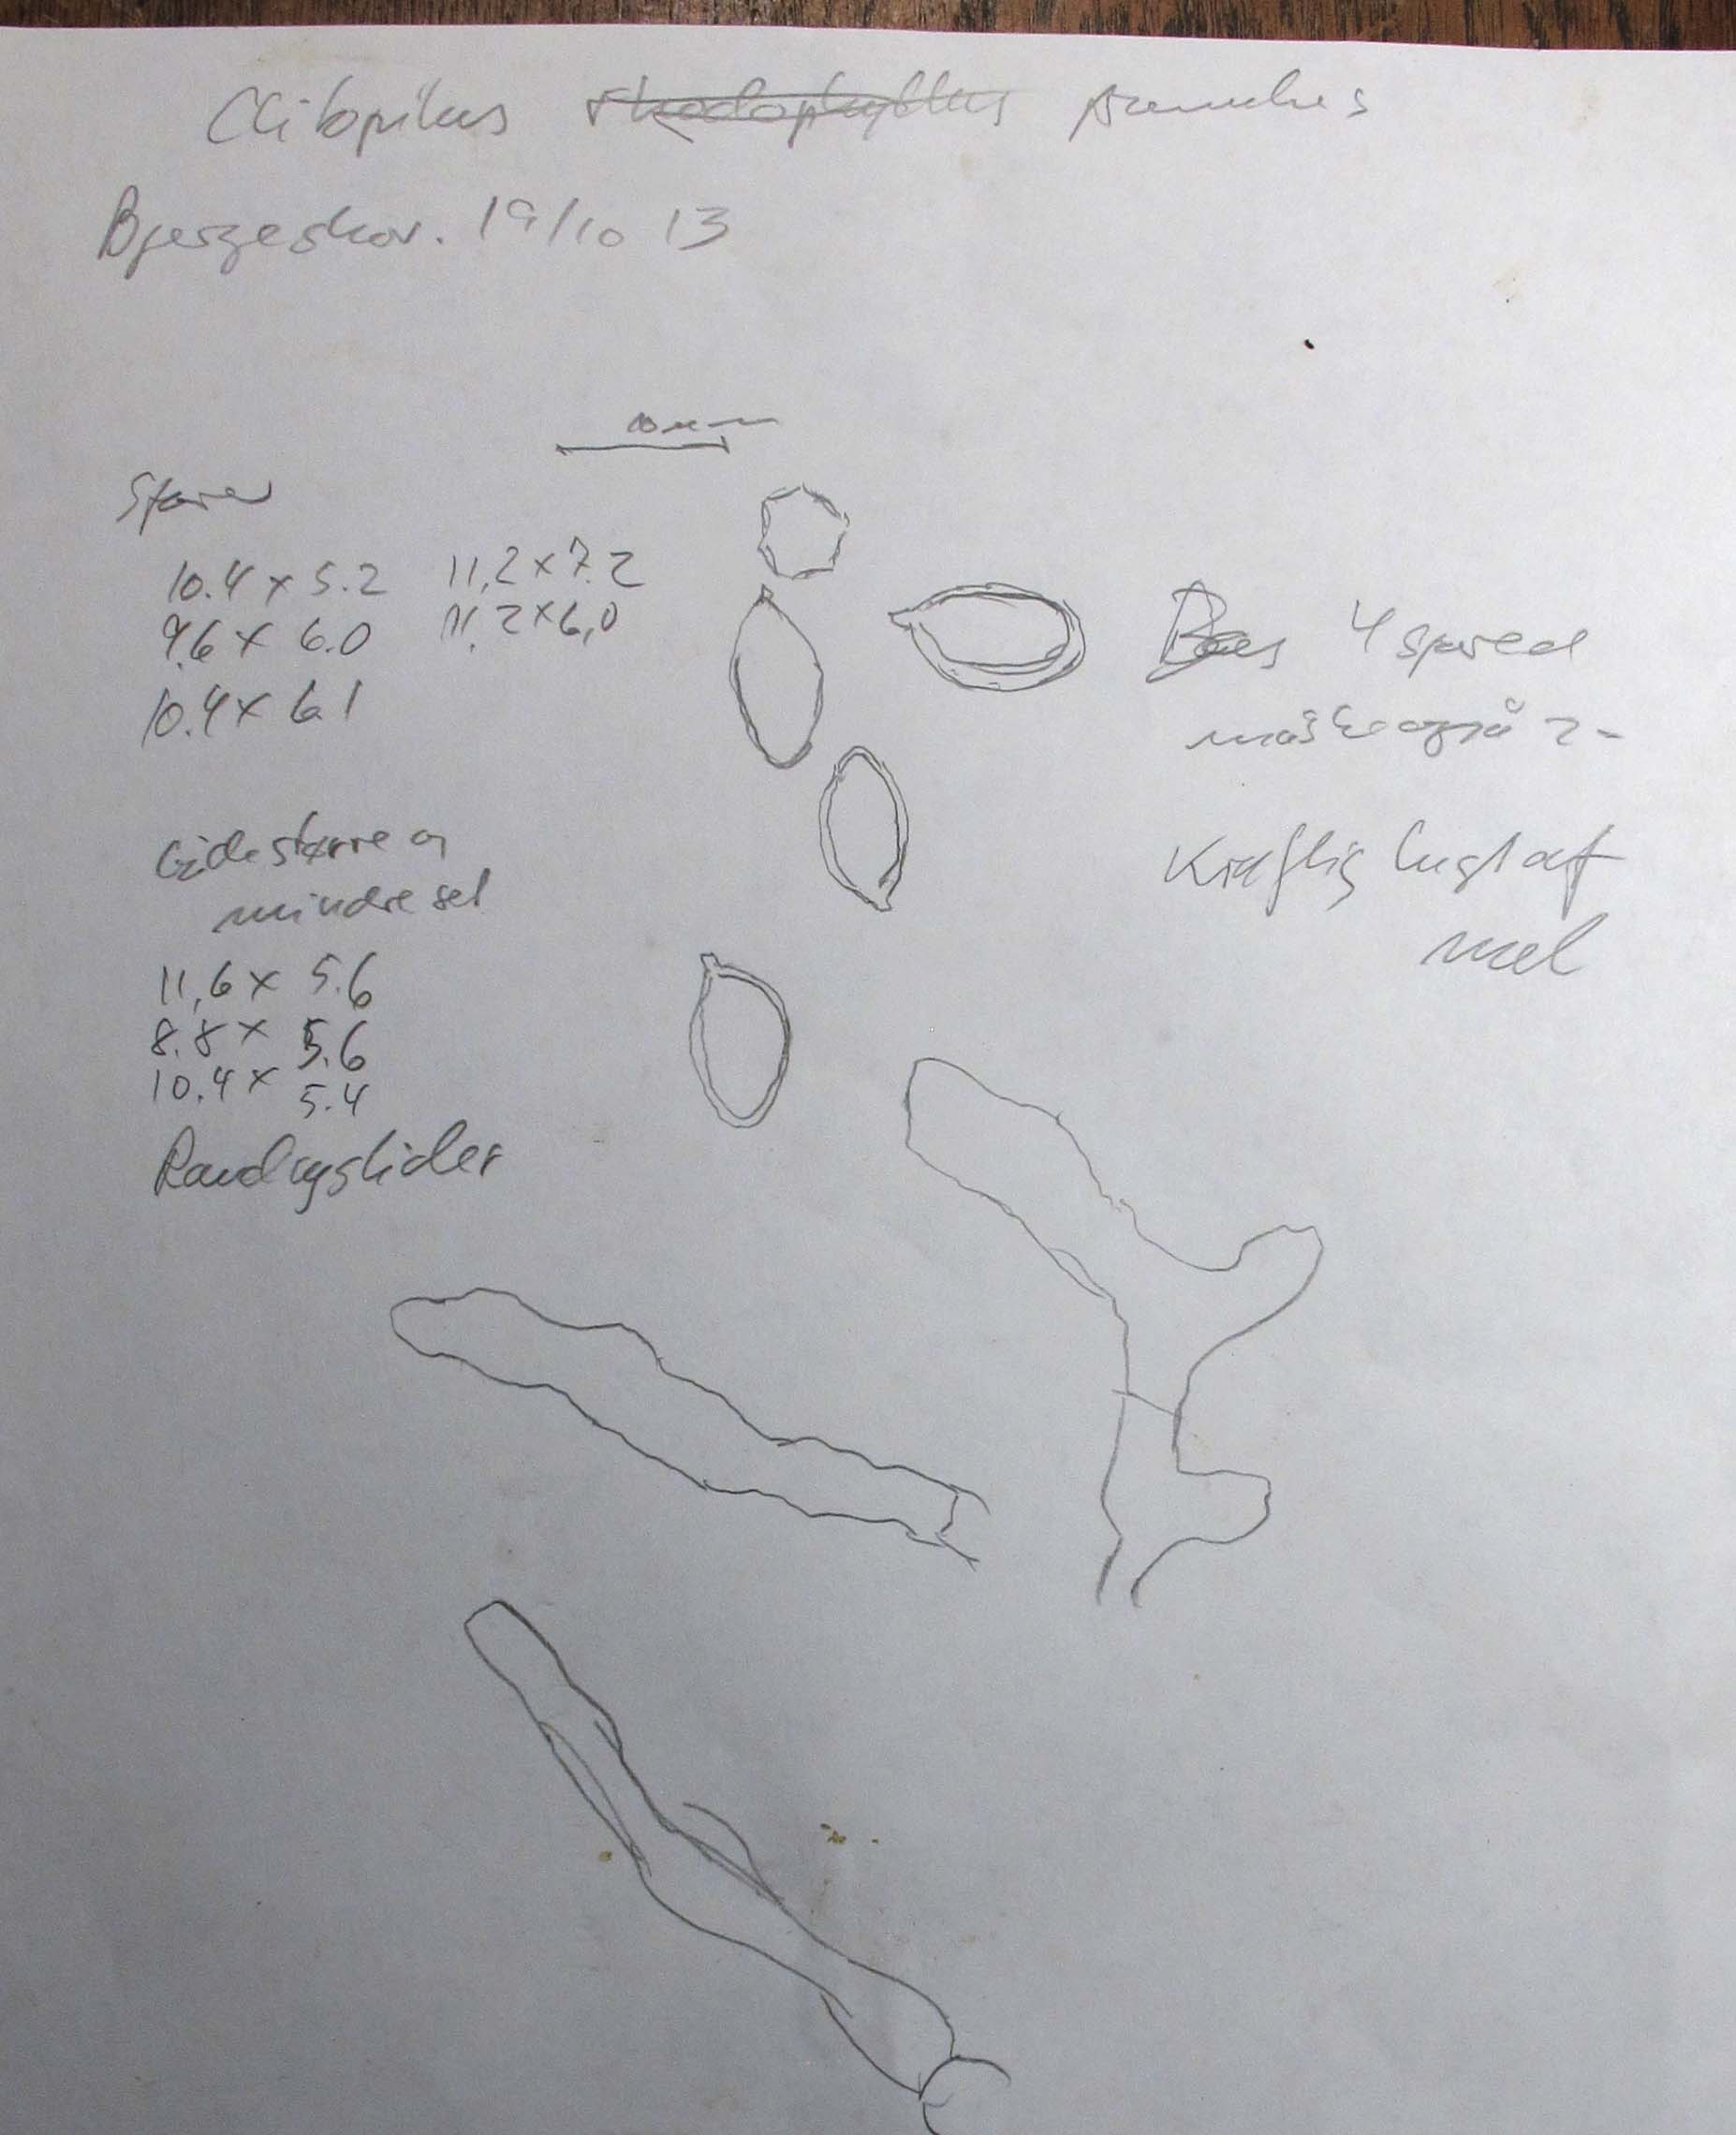 Clitopilus rhodophyllus
Bjergeskov. 19/10 13
10 µm
Sporer
10.4 x 5.2 11,2 x 7.2
9.6 x 6.0 11,2 x 6,0
10.4 x 6.1
Bas 4 spored
måske også 2-
Kraftig lugt af
mel
Lidt større og
mindre set
11,6 x 5.6
8.8 x 5.6
10.4 x 5.4
Randcystider